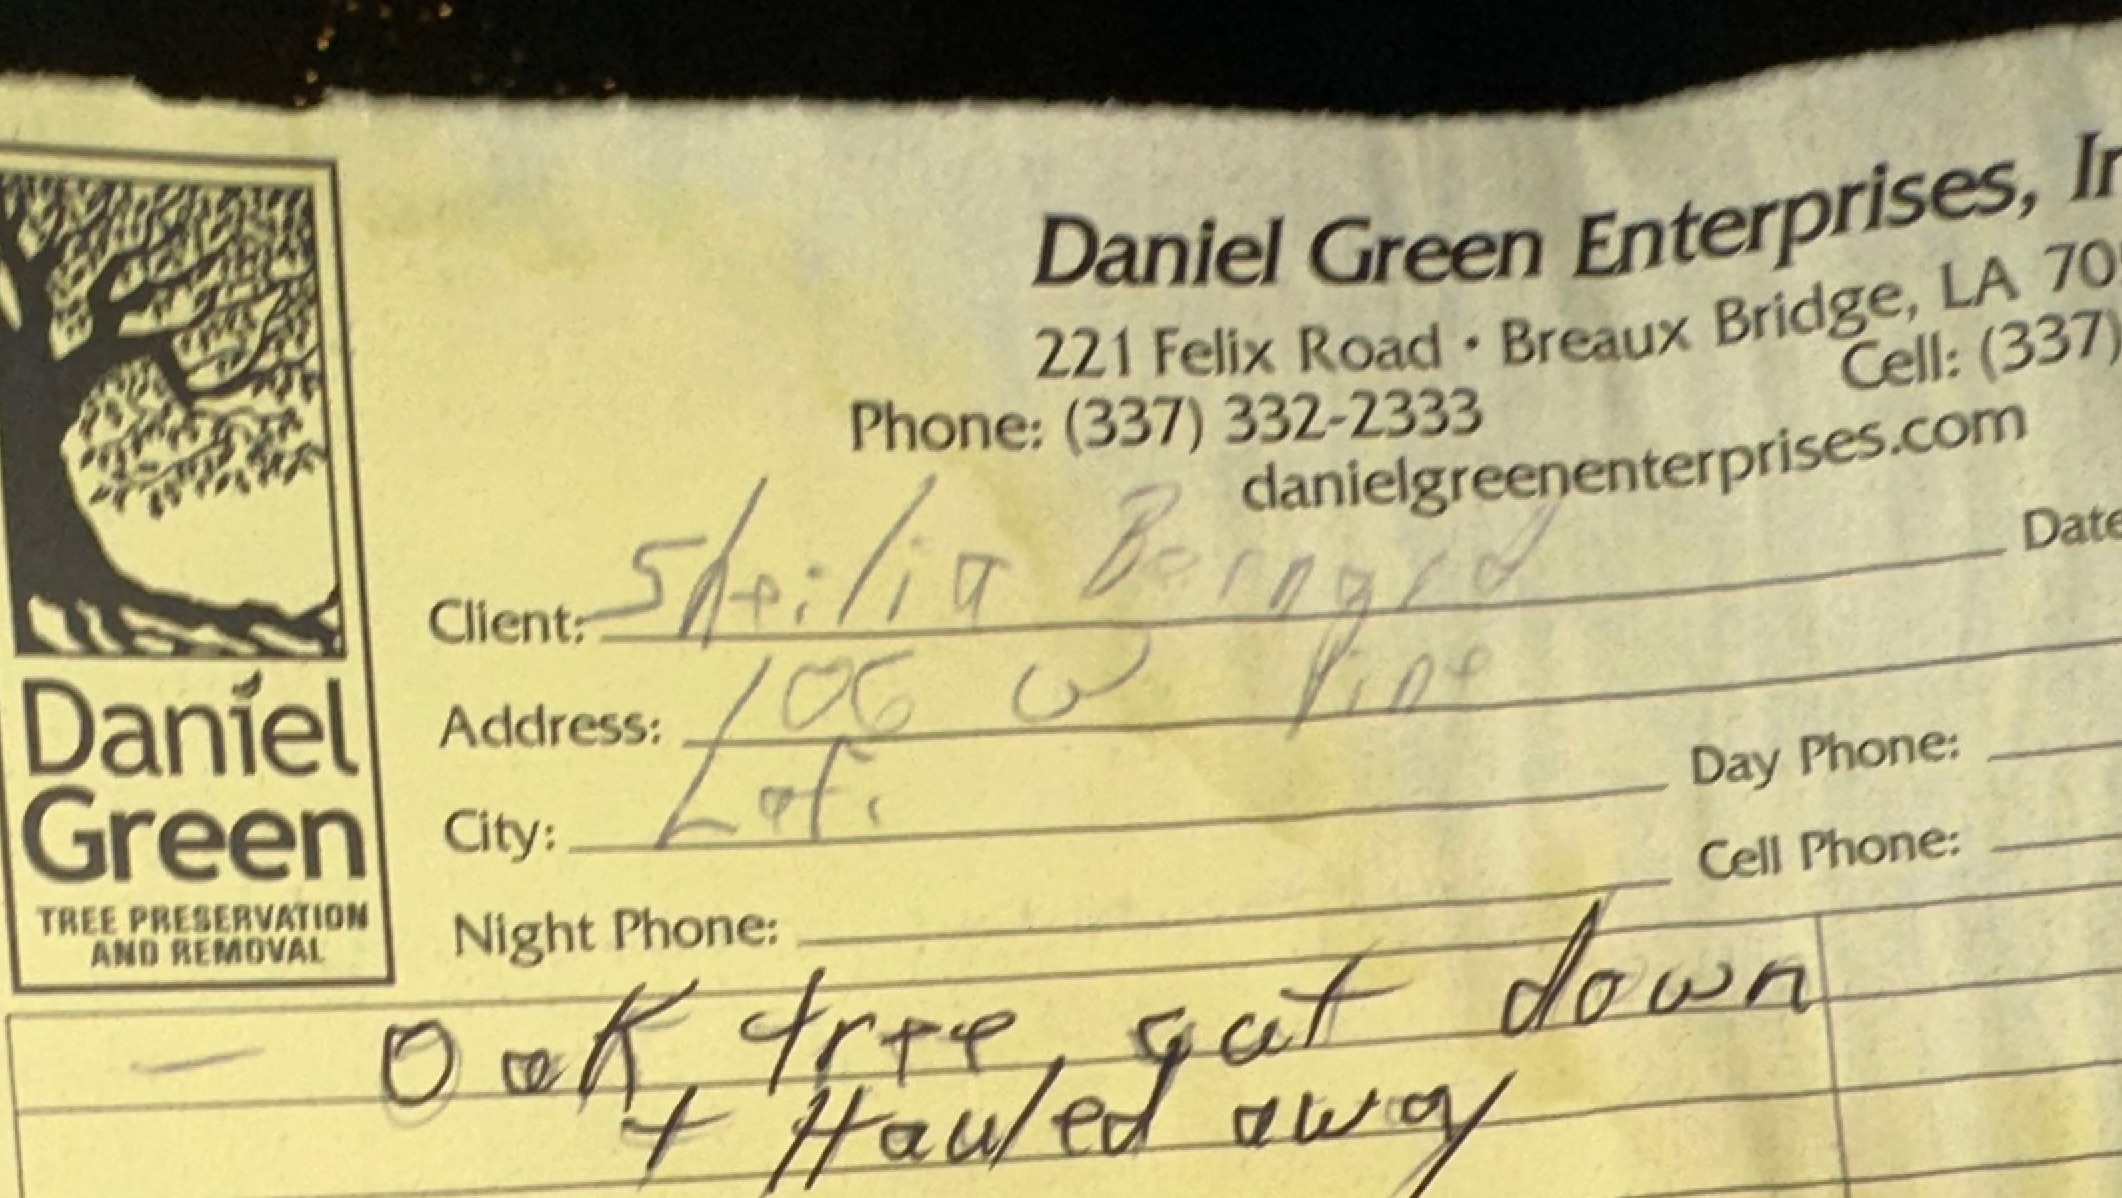 Daniel Green Enterprises,
221 Felix Road • Breaux Bridge, LA 70
Cell: (337)
Phone: (337) 332-2333
danielgreenenterprises.com
Date
Client: Sheilia Bernard
Address: 106 W Pine
City: Laf.
Day Phone:
Cell Phone:
Night Phone:
Daniel
Green
TREE PRESERVATION
AND REMOVAL
— Oak tree, cut down
+ Hauled away